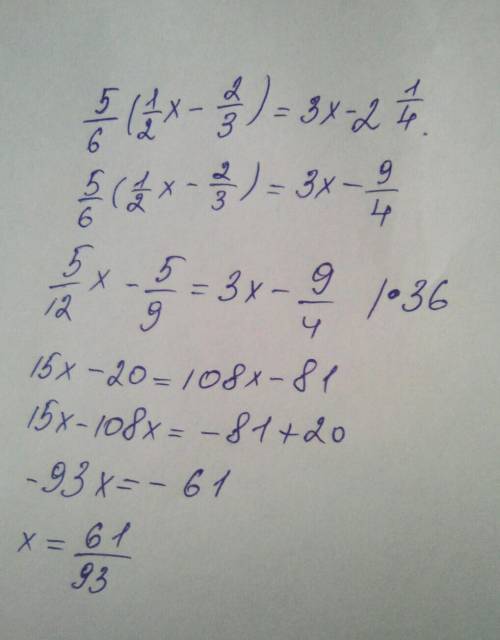 5/6 (1/2 x - 2/3) = 3x - 2 1/4.
5/6 (1/2 x - 2/3) = 3x - 9/4
5/12 x - 5/9 = 3x - 9/4 /•36
15x - 20 = 108x - 81
15x - 108x = - 81 + 20
- 93x = - 61
x = 61/93